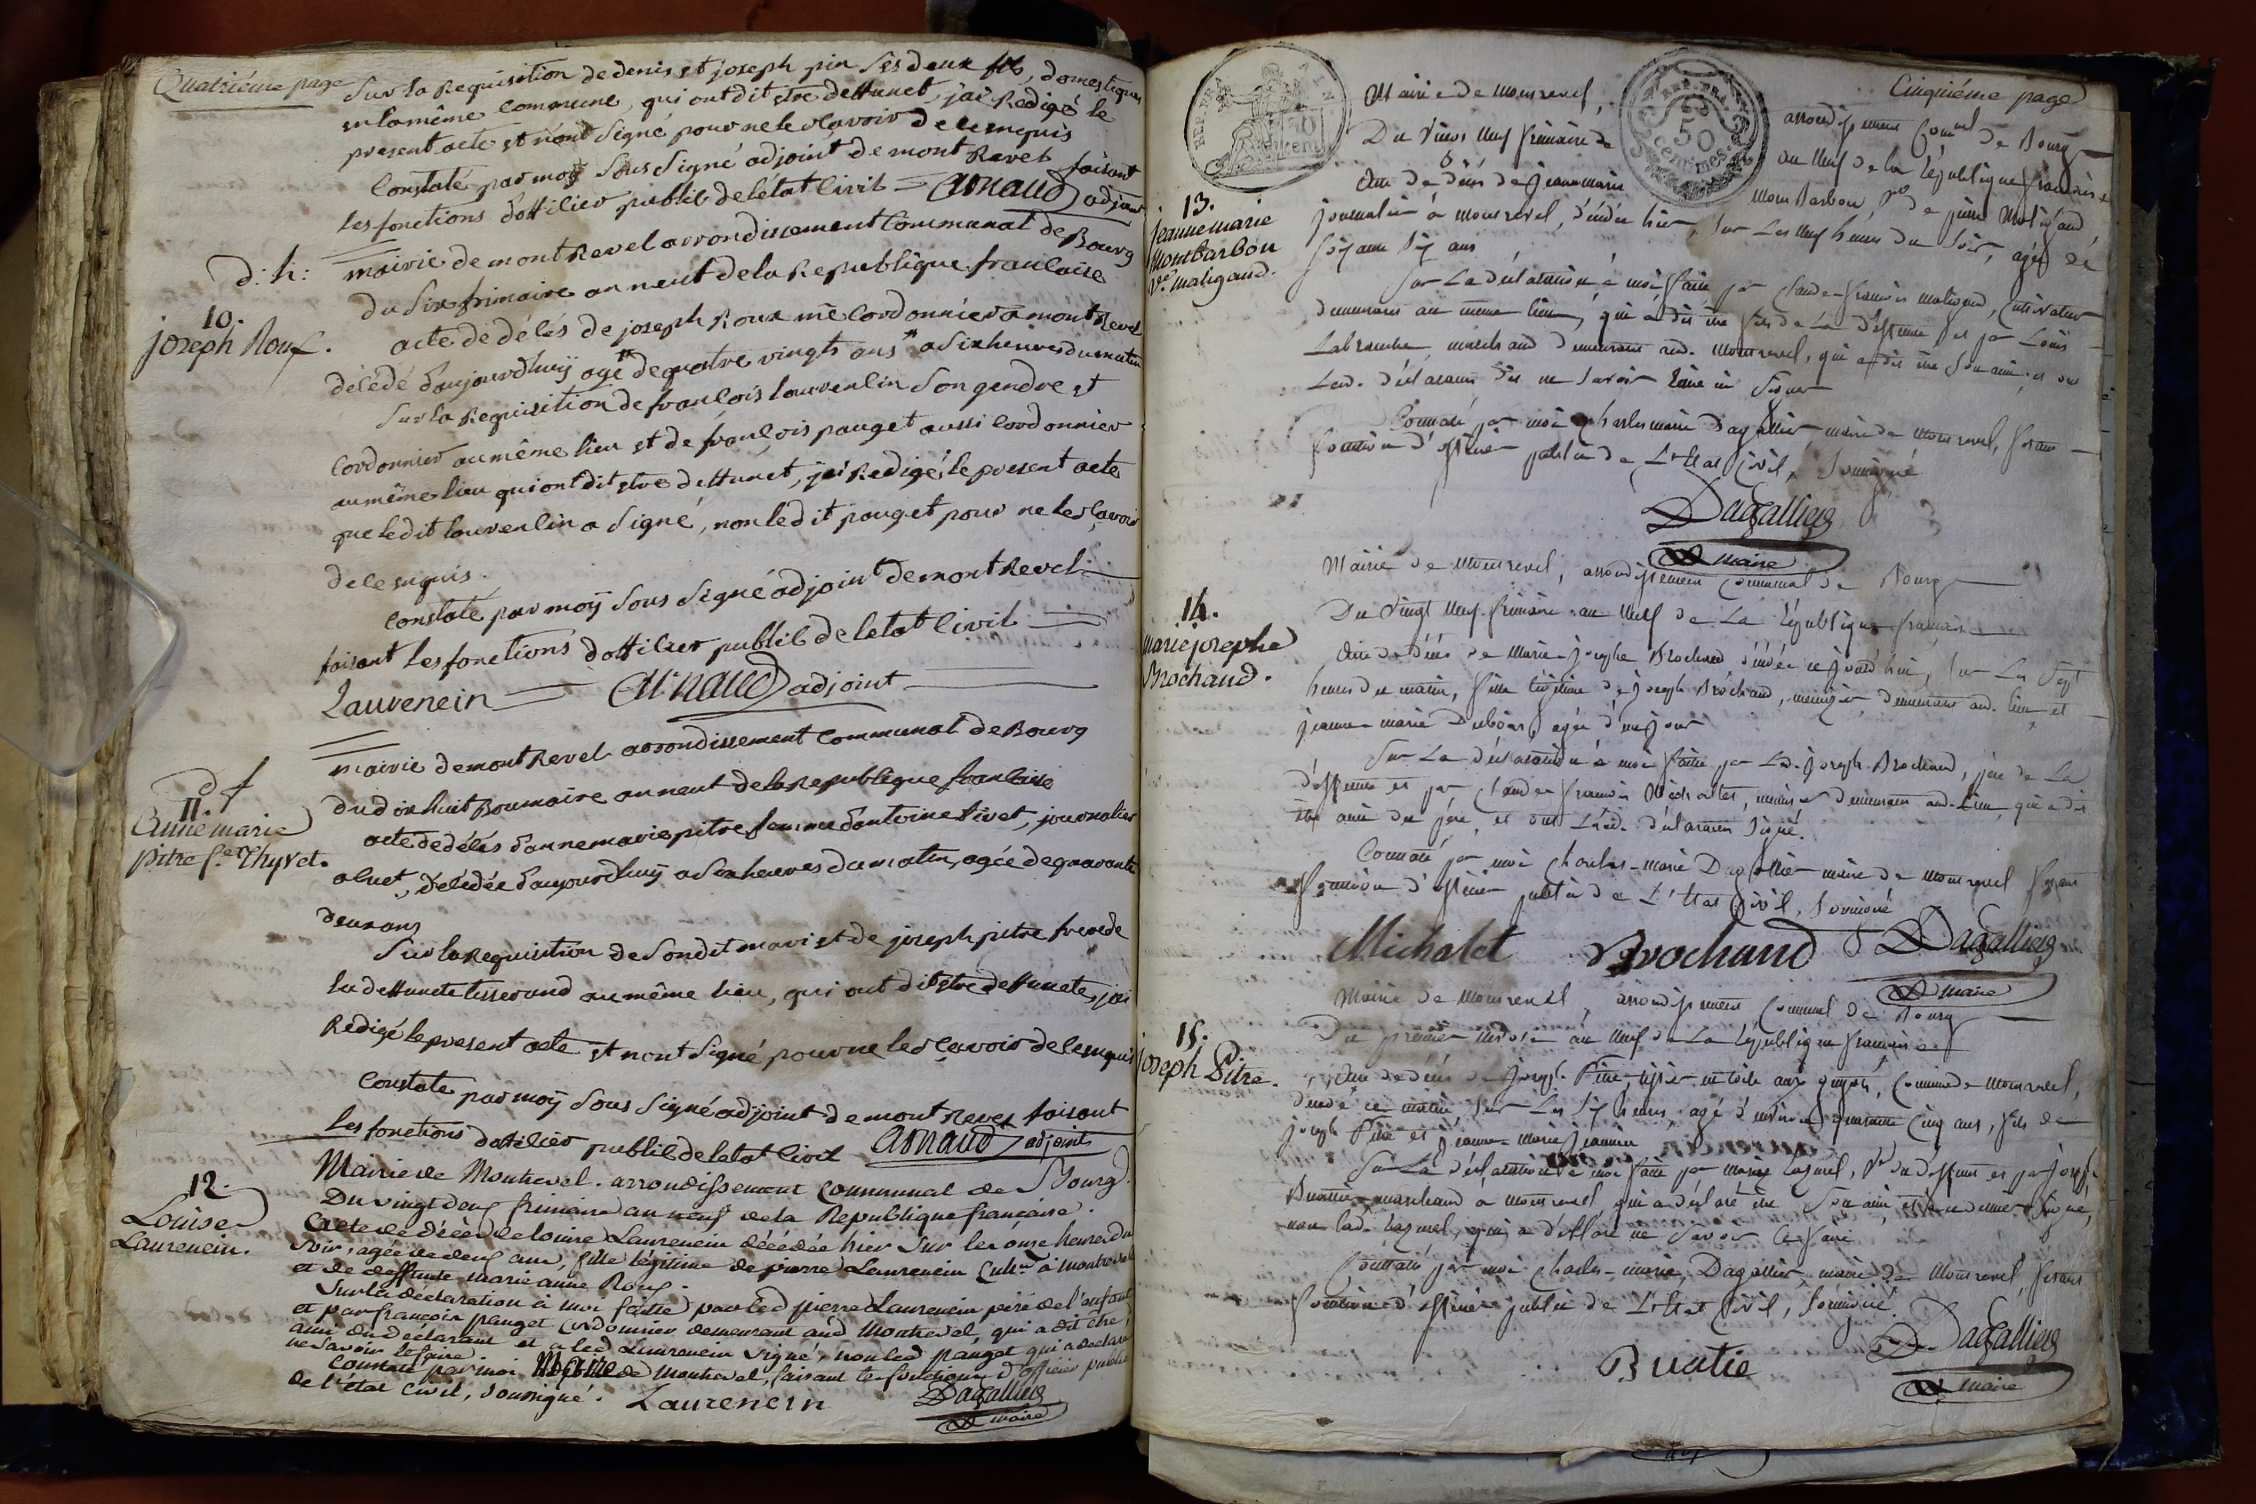 Quatriéme page
Sur la Requisition de denis et joseph pin ses deux fils, domestiques
en la même commune, qui ont dit etre deffunct, j'ai Redigé le
present acte et n'ont signé pour ne le sçavoir de ce enquis
Constaté par moy sous signé adjoint de mont Revel faisant
les fonctions dofficier public de létat civil = Arnaud adjoint
d: h:
mairie de mont Revel arrondissement Communal de Bourg
du six frimaire an neuf de la Republique francaise
10.
joseph Roux.
acte de décés de joseph Roux me Cordonnier a mont Revel
décédé daujourdhuy agé de quatre vingts ans a six heures du matin
Sur la Requisition de francois Laurencin Son gendre et
Cordonnier au même lieu et de françois pauget aussi Cordonnier
au même lieu qui ont dit etre deffunct, j'ai Redigé le present acte
que ledit Laurencin a signé, non ledit pauget pour ne le sçavoir
de ce enquis.
Constaté par moy sous signé adjoint de mont Revel
faisant les fonctions dofficier public de letat Civil
Laurencin = Arnaud adjoint
d f
11.
Anne marie
pitre f.e Thyvet.
mairie de mont Revel arrondissement Communal de Bourg
du dix huit Brumaire an neuf de la Republique francaise
acte de décés d'anne marie pitre femme dantoine tivet, journalier
aluet, décédée daujourdhuy a six heures du matin, agée de quarante
deux ans
Sur la Requisition de son dit mari et de joseph pitre frere de
la deffuncte tisserand au même lieu, qui ont dit etre deffuncte, j'ai
Redigé le present acte et n'ont signé pour ne le sçavoir de ce enquis
Constaté par moy sous signé adjoint de mont Revel faisant
les fonctions dofficier public de letat civil Arnaud adjoint
12.
Louise
Laurencin.
Mairie de Montrevel. arrondissement Communal de Bourg.
Du vingt deux frimaire an neuf de la Republique française.
Acte de décès de louise Laurencin décédée hier sur les onze heures du
soir, agée de deux ans, fille légitime de pierre Laurencin Cultr. à montrevel
et de deffunte marie anne Roux.
Sur la declaration à moi faitte par led pierre Laurencin pere de l'enfant
et par françois pauget Cordonnier demeurant aud Montrevel, qui a dit etre
ami du declarant et a led Laurencin signé, non led pauget qui a declaré
ne savoir le faire.
Constaté par moi Maire de Montrevel, faisant les fonctions d'officier public
de l'état civil, soussigné. Laurencin Dagallier
maire
Cinquiéme page
REP. FRA.
50
centimes
Mairie de Montrevel, arrondissement Comnal de Bourg
Du Vingt Neuf frimaire an Neuf de la République française
13.
jeanne marie
Montbarbon
Ve. maligaud.
Acte de décès de jeanne marie Montbarbon Ve de pierre Maligaud,
journalier à Montrevel, décédée hier, sur Les Neuf heures du Soir, agée de
soixante six ans
Sur La déclaration à moi faite par Claude françois maligaud, Cultivateur
demeurant au même lieu, qui a dit être fils de La deffunte et par Louis
Labranche marchand demeurant aud. Montrevel, qui a dit être Son ami, et ont
Lesd. déclarants dit ne savoir Ecrire ni Signer
Constaté par moi Charles marie Dagallier maire de montrevel, faisant
fonction d'officier public de L'Etat Civil, Soussigné
Dagallier
maire
Mairie de Montrevel, arrondissement Communal de Bourg
14.
marie josephe
Brochand.
Du Vingt Neuf frimaire an Neuf de La République française
Acte de décès de Marie josephe Brochand décédée ce jourd'hui, sur Les Sept
heures du matin, fille légitime de joseph Brochand, menuisier, demeurant aud. lieu, et
jeanne marie Dubois, agée d'un jour
Sur La déclaration à moi faite par Led. joseph Brochand, père de La
deffunte et par Claude françois Michalet, demeurant aud. Lieu, qui a dit
être ami du père, et ont Lesd. déclarants signé.
Constaté par moi Charles-marie Dagallier maire de montrevel faisant
fonction d'officier public de L'Etat Civil, Soussigné
Michalet Brochand Dagallier
maire
Mairie de Montrevel, arrondissement Communal de Bourg
15.
joseph Pitre.
Du premier Nivose an Neuf de La République française
Acte de décès de joseph Pitre, tissier en toile, Commune de Montrevel,
décédé ce matin, sur Les six heures, agé d'environ quarante Cinq ans, fils de
joseph Pitre et jeanne marie
Sur La déclaration à moi faite par marie, Ve du deffunt et par joseph
Buattie marchand à montrevel, qui a déclaré être Son ami, et a ce dernier Signé,
non lad., qui a déclaré ne Savoir Le faire
Constaté par moi Charles-marie Dagallier, maire de Montrevel, faisant
fonction d'officier public de L'Etat Civil, Soussigné.
Buatie Dagallier
maire